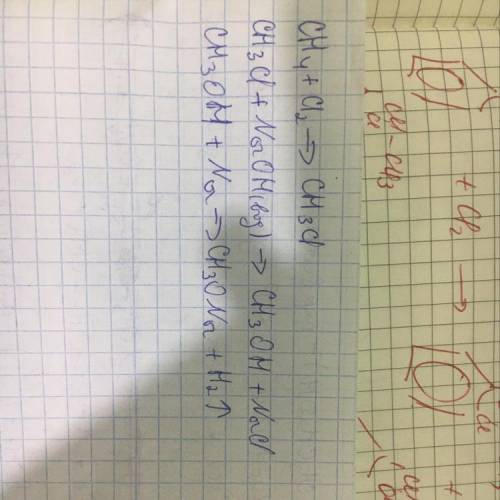 CH4 + Cl2 → CH3Cl
CH3Cl + NaOH(вод) → CH3OH + NaCl
CH3OH + Na → CH3ONa + H2↑
+ Cl2 →
CH-CH3
Cl